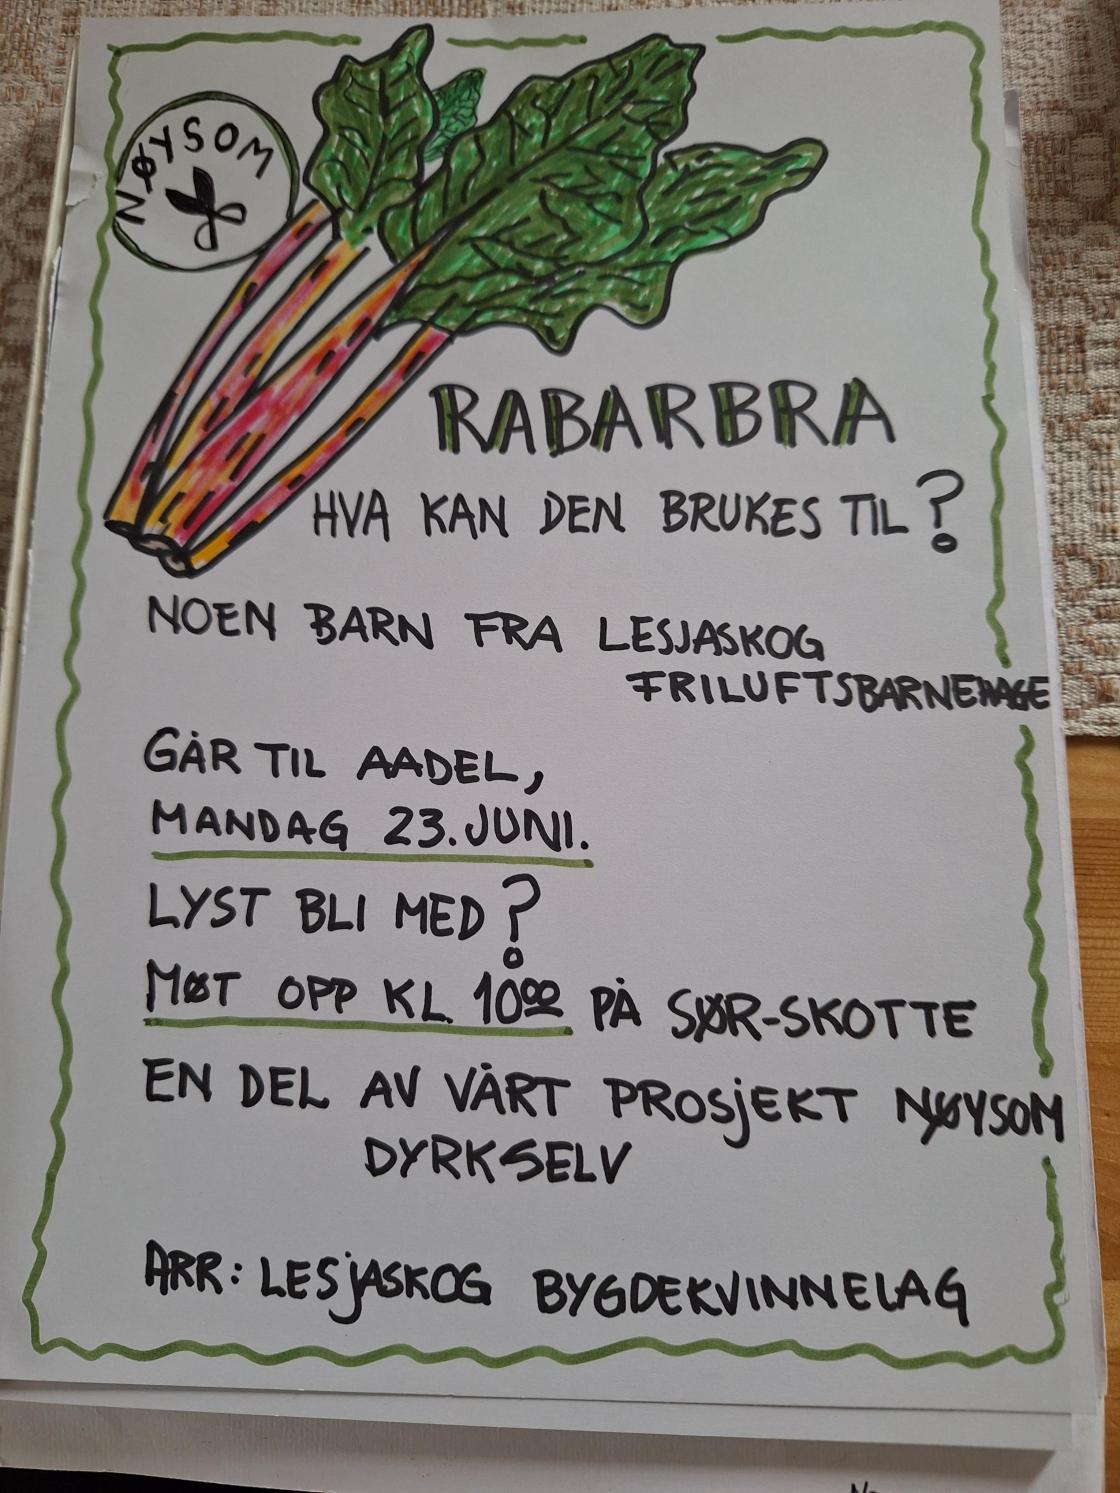 NØYSOM
RABARBRA
HVA KAN DEN BRUKES TIL?
NOEN BARN FRA LESJASKOG
FRILUFTSBARNEHAGE
GÅR TIL AADEL,
MANDAG 23. JUNI.
LYST BLI MED?
MØT OPP KL 10⁰⁰ PÅ SØR-SKOTTE
EN DEL AV VÅRT PROSJEKT NØYSOM
DYRKSELV
ARR: LESJASKOG BYGDEKVINNELAG